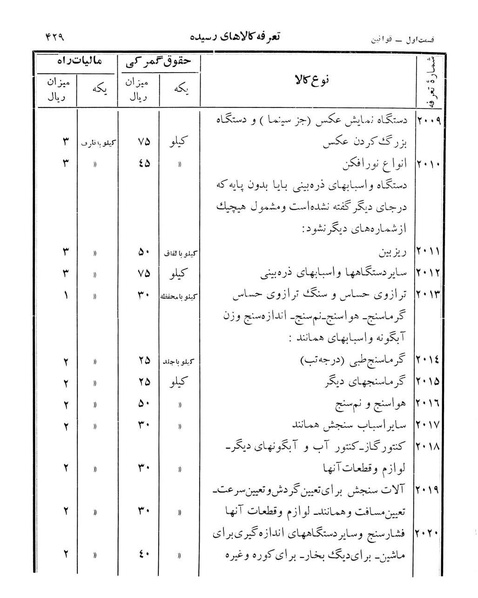 قسمت اول ـ قوانین تعرفه کالاهای رسیده ۴۲۹
شمارهٔ تعرفه نوع کالا حقوق گمرکی مالیات راه
یکه میزان ریال یکه میزان ریال
۲۰۰۹ دستگاه نمایش عکس (جز سینما) و دستگاه
بزرگ کردن عکس کیلو ۷۵ کیلو با ظرف ۳
۲۰۱۰ انواع نورافکن » ۴۵ » ۳
دستگاه واسبابهای ذره‌بینی بایا بدون پایه که
درجای دیگر گفته نشده‌است ومشمول هیچیک
ازشماره‌های دیگر نشود:
۲۰۱۱ ریزبین کیلو با لفاف ۵۰ » ۳
۲۰۱۲ سایر دستگاهها واسبابهای ذره‌بینی کیلو ۷۵ » ۳
۲۰۱۳ ترازوی حساس و سنگ ترازوی حساس کیلو با محفظه ۳۰ » ۱
گرماسنج‌ـ هواسنج‌ـ نم‌سنج‌ـ اندازه‌سنج وزن
آبگونه واسبابهای همانند :
۲۰۱۴ گرماسنج‌طبی (درجه‌تب) کیلو با جلد ۲۵ » ۲
۲۰۱۵ گرماسنجهای دیگر کیلو ۲۵ » ۲
۲۰۱۶ هواسنج و نم‌سنج » ۵۰ » ۲
۲۰۱۷ سایر اسباب سنجش همانند » ۳۰ » ۲
۲۰۱۸ کنتور گاز ـ کنتور آب و آبگونهای دیگر ـ
لوازم و قطعات آنها » ۳۰ » ۲
۲۰۱۹ آلات سنجش برای‌تعیین‌گردش و تعیین سرعت‌ـ
تعیین مسافت و همانند ـ لوازم و قطعات آنها » ۳۰ » ۲
۲۰۲۰ فشارسنج وسایر دستگاههای اندازه‌گیری برای
ماشین‌ـ برای دیگ بخار ـ برای کوره وغیره » ۴۰ » ۲